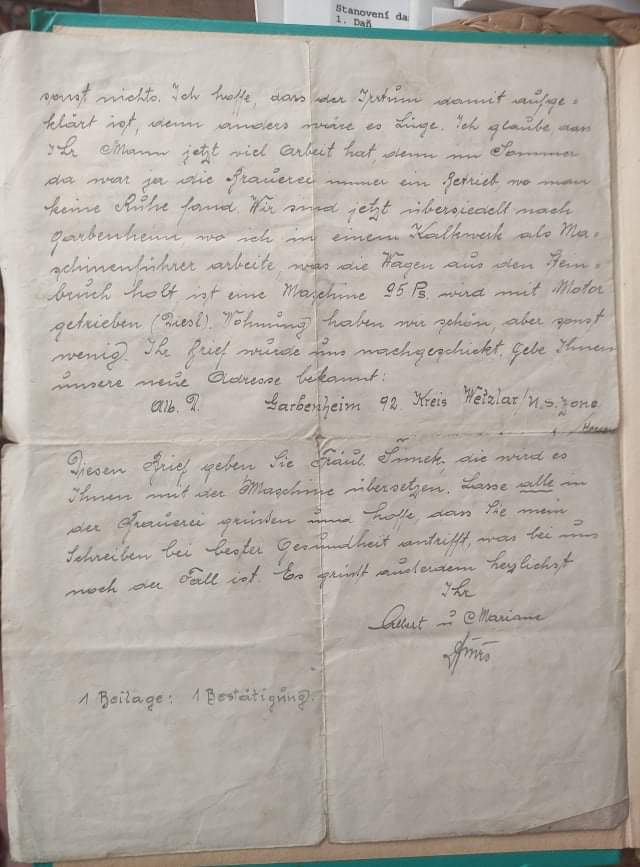 Stanovení da
1. Daň
sonst nichts. Ich hoffe, dass der Irrtum damit aufge=
klärt ist, denn anders wäre es Lüge. Ich glaube, das
Ihr Mann jetzt viel Arbeit hat denn im Sommer
da war ja die Brauerei immer ein Betrieb, wo man
keine Ruhe fand. Wir sind jetzt übersiedelt nach
Garbenheim, wo ich in einem Kalkwerk als Ma=
schinenführer arbeite, was die Wagen aus den Stein=
bruch holt ist eine Maschine 25 Ps, wird mit Motor
getrieben (Diesl). Wohnung haben wir schön, aber sonst
wenig. Ihr Brief wurde uns nachgeschickt. Gebe Ihnen
unsere neue Adresse bekannt:
Alb. D. Garbenheim 92. Kreis Wetzlar/U.S. Zone
Diesen Brief geben Sie Fräul. Šimek, die wird es
Ihnen mit der Maschine übersetzen. Lasse alle in
der Brauerei grüssen und hoffe, dass Sie mein
Schreiben bei bester Gesundheit antrifft, was bei uns
noch der Fall ist. Es grüsst ausserdem herzlichst
Ihr
Albert u Mariane
1 Beilage: 1 Bestätigung.